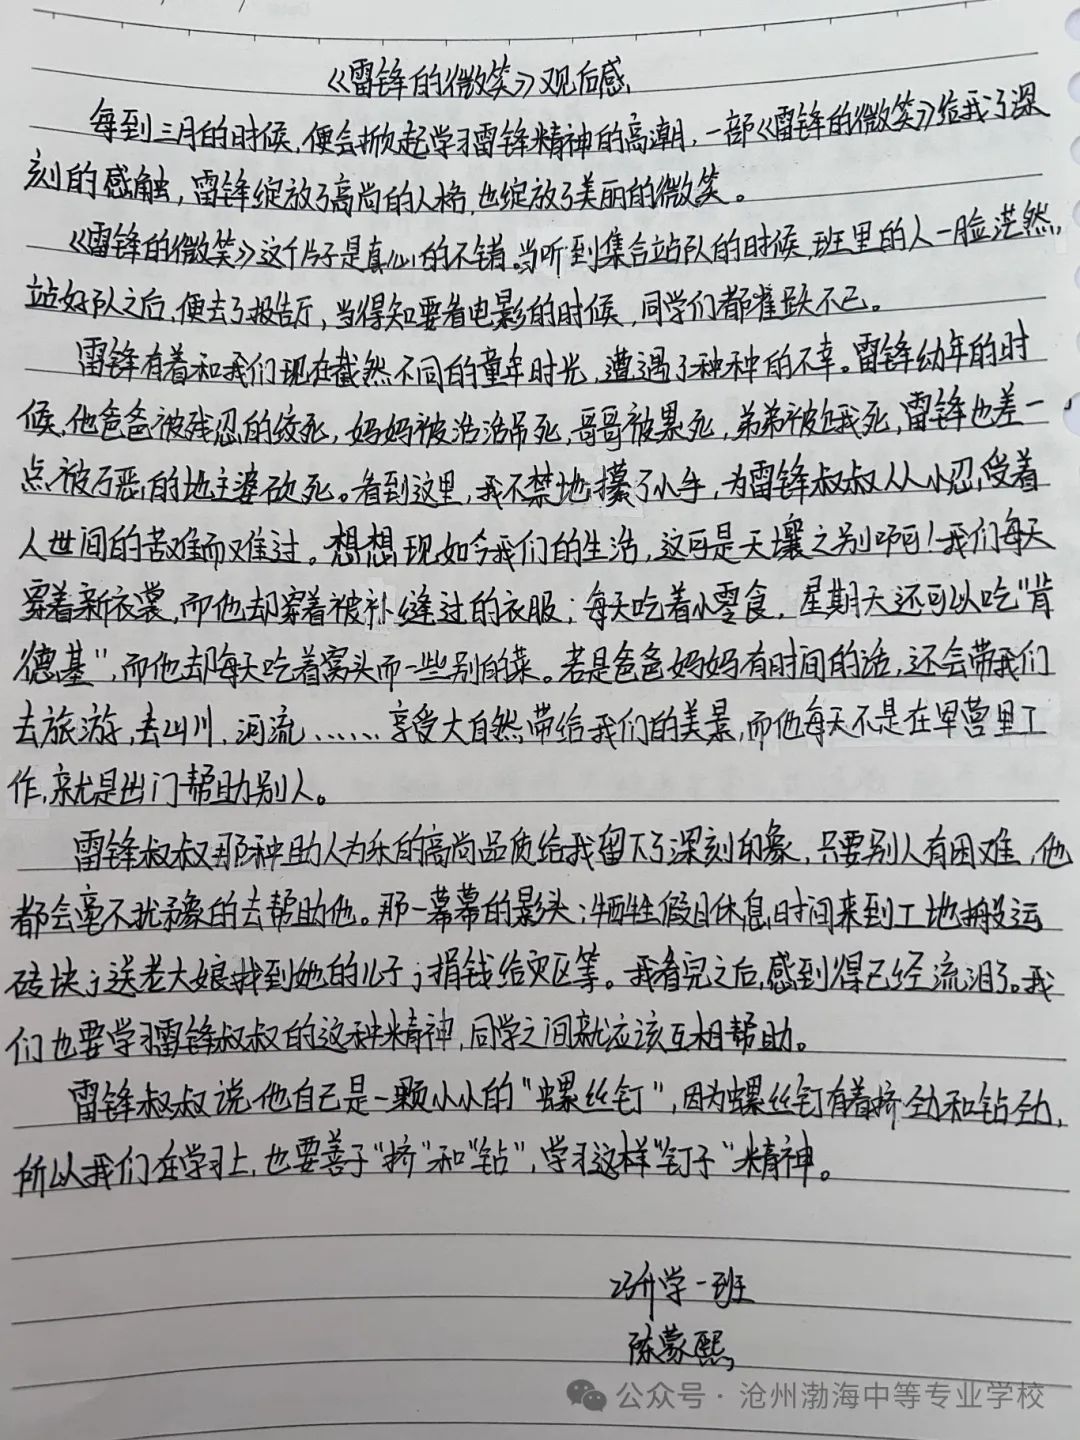 《雷锋的微笑》观后感
每到三月的时候,便会掀起学习雷锋精神的高潮,一部《雷锋的微笑》给我了深
刻的感触,雷锋绽放了高尚的人格,也绽放了美丽的微笑。
《雷锋的微笑》这个片子是真心的不错。当听到集合站队的时候,班里的人一脸茫然,
站好队之后,便去了报告厅,当得知要看电影的时候,同学们都雀跃不已。
雷锋有着和我们现在截然不同的童年时光,遭遇了种种的不幸。雷锋幼年的时
候,他爸爸被残忍的绞死,妈妈被活活吊死,哥哥被累死,弟弟被饿死,雷锋也差一
点被万恶的地主婆砍死。看到这里,我不禁地攥了小手,为雷锋叔叔从小忍受着
人世间的苦难而难过。想想现如今我们的生活,这可是天壤之别啊!我们每天
穿着新衣裳,而他却穿着被补缝过的衣服;每天吃着小零食,星期天还可以吃"肯
德基",而他却每天吃着窝头而一些别的菜。若是爸爸妈妈有时间的话,还会带我们
去旅游,去山川,河流……享受大自然带给我们的美景,而他每天不是在军营里工
作,就是出门帮助别人。
雷锋叔叔那种助人为乐的高尚品质给我留下了深刻印象,只要别人有困难,他
都会毫不犹豫的去帮助他。那一幕幕的影头;牺牲假日休息时间来到工地搬运
砖块;送老大娘找到她的儿子;捐钱给灾区等。我看完之后,感到得已经流泪了。我
们也要学习雷锋叔叔的这种精神,同学之间就应该互相帮助。
雷锋叔叔说他自己是一颗小小的"螺丝钉",因为螺丝钉有着挤劲和钻劲,
所以我们在学习上,也要善于"挤"和"钻",学习这样"钉子"精神。
23升学一班
陈蒙熙
公众号·沧州渤海中等专业学校